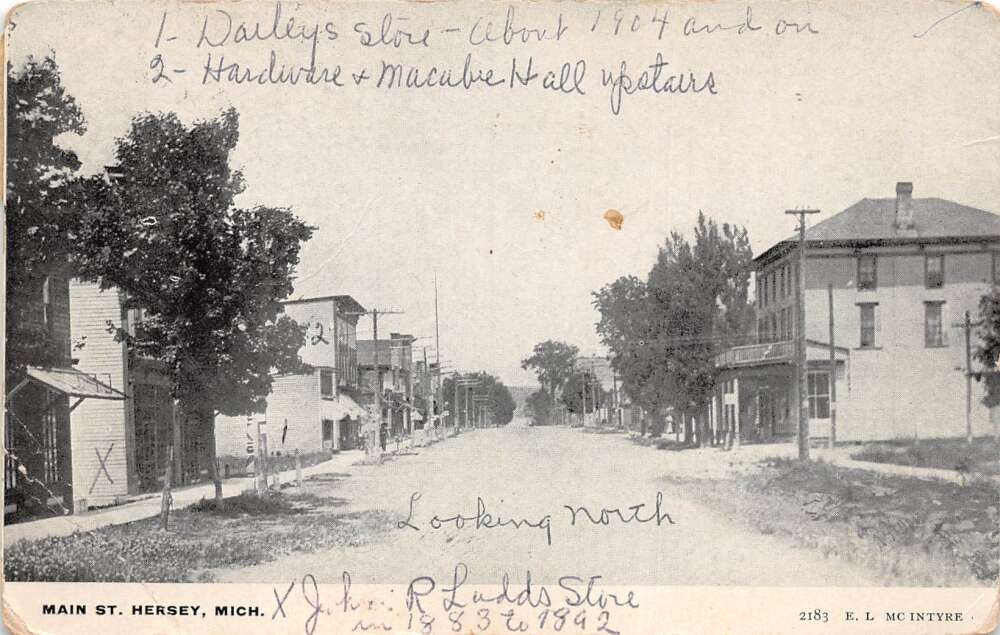 1- Dailey's store - about 1904 and on
2- Hardware + Macabre Hall upstairs
2
1
X
Looking north
MAIN ST. HERSEY, MICH. X John R Ladds Store
in 1883 to 1892
2183 E. L MC INTYRE